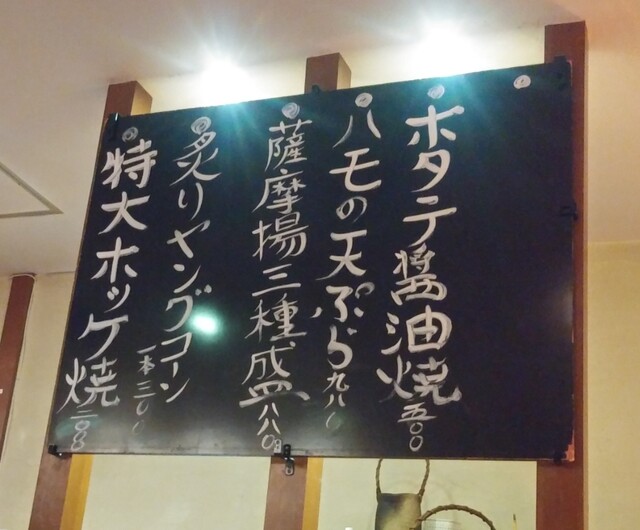 ホタテ醤油焼 五〇〇
ハモの天ぷら 九八〇
薩摩揚三種盛 八八〇
炙りヤングコーン 一本三〇〇
特大ホッケ焼